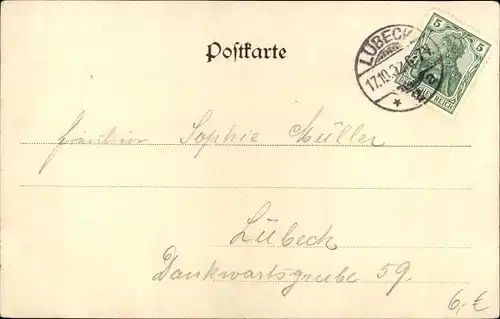 Postkarte
LÜBECK
17.10.02
5 5
REICH
Fräulein Sophie Müller
Lübeck
Dankwartsgrube 59.
6,-€